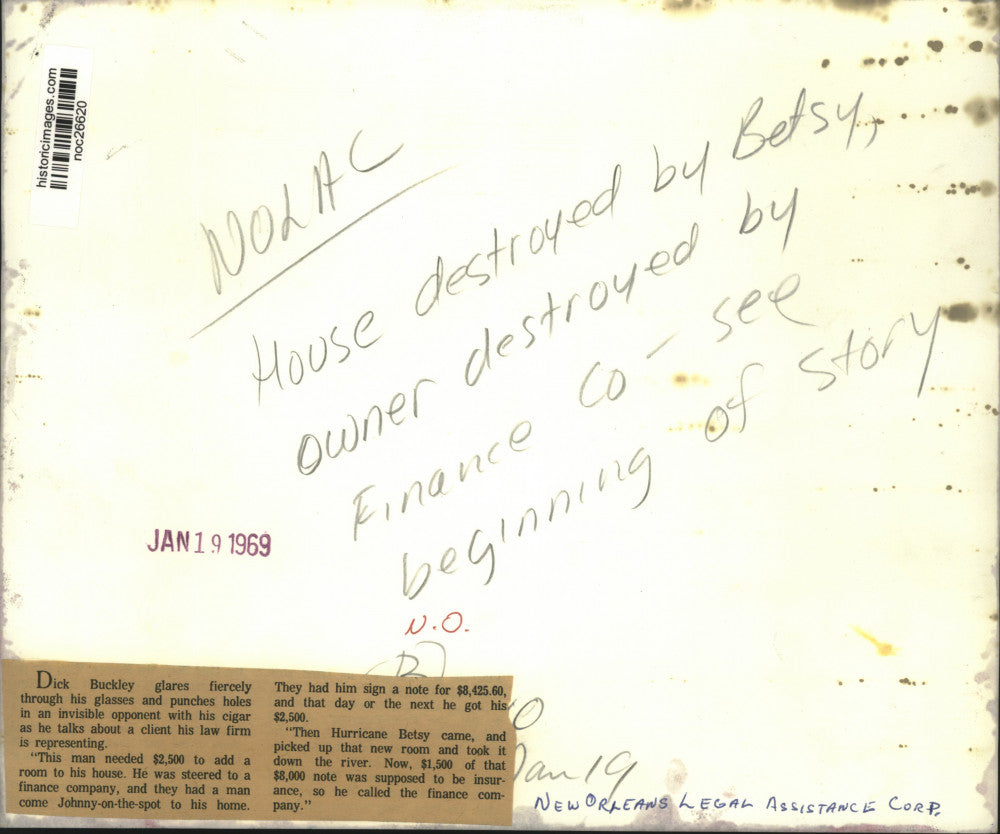 historicimages.com
noc26620
NOLAC
House destroyed by Betsy,
owner destroyed by
Finance Co - see
beginning of story
JAN 19 1969
N.O.
Dick Buckley glares fiercely
through his glasses and punches holes
in an invisible opponent with his cigar
as he talks about a client his law firm
is representing.
"This man needed $2,500 to add a
room to his house. He was steered to a
finance company, and they had a man
come Johnny-on-the-spot to his home.
They had him sign a note for $8,425.60,
and that day or the next he got his
$2,500.
"Then Hurricane Betsy came, and
picked up that new room and took it
down the river. Now, $1,500 of that
$8,000 note was supposed to be insur-
ance, so he called the finance com-
pany."
Jan 19
NEW ORLEANS LEGAL ASSISTANCE CORP.